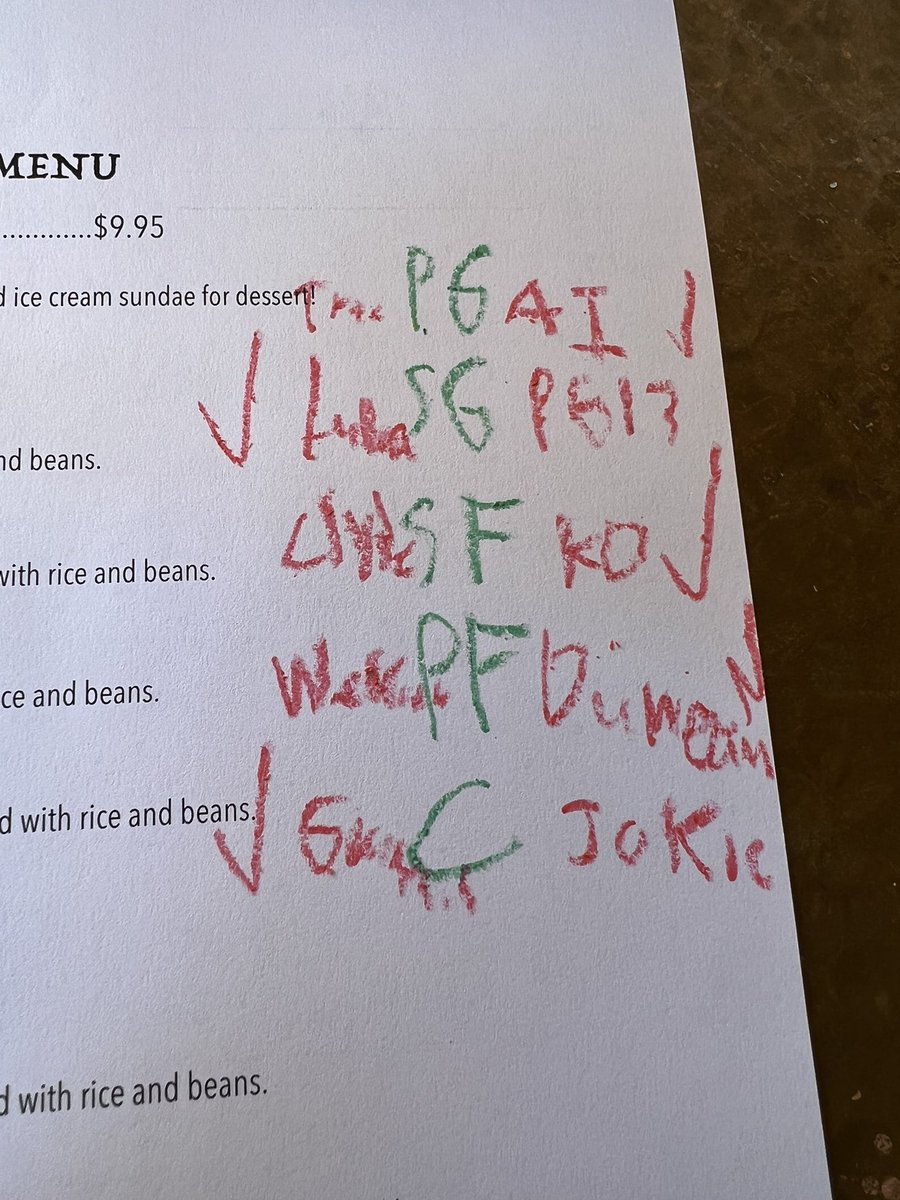 MENU
............$9.95
d ice cream sundae for dessert!
Trae PG AI ✓
✓ Luka SG PG13
nd beans.
SF KD ✓
with rice and beans.
PF Duncan ✓
ice and beans.
✓ C JoKic
d with rice and beans.
d with rice and beans.